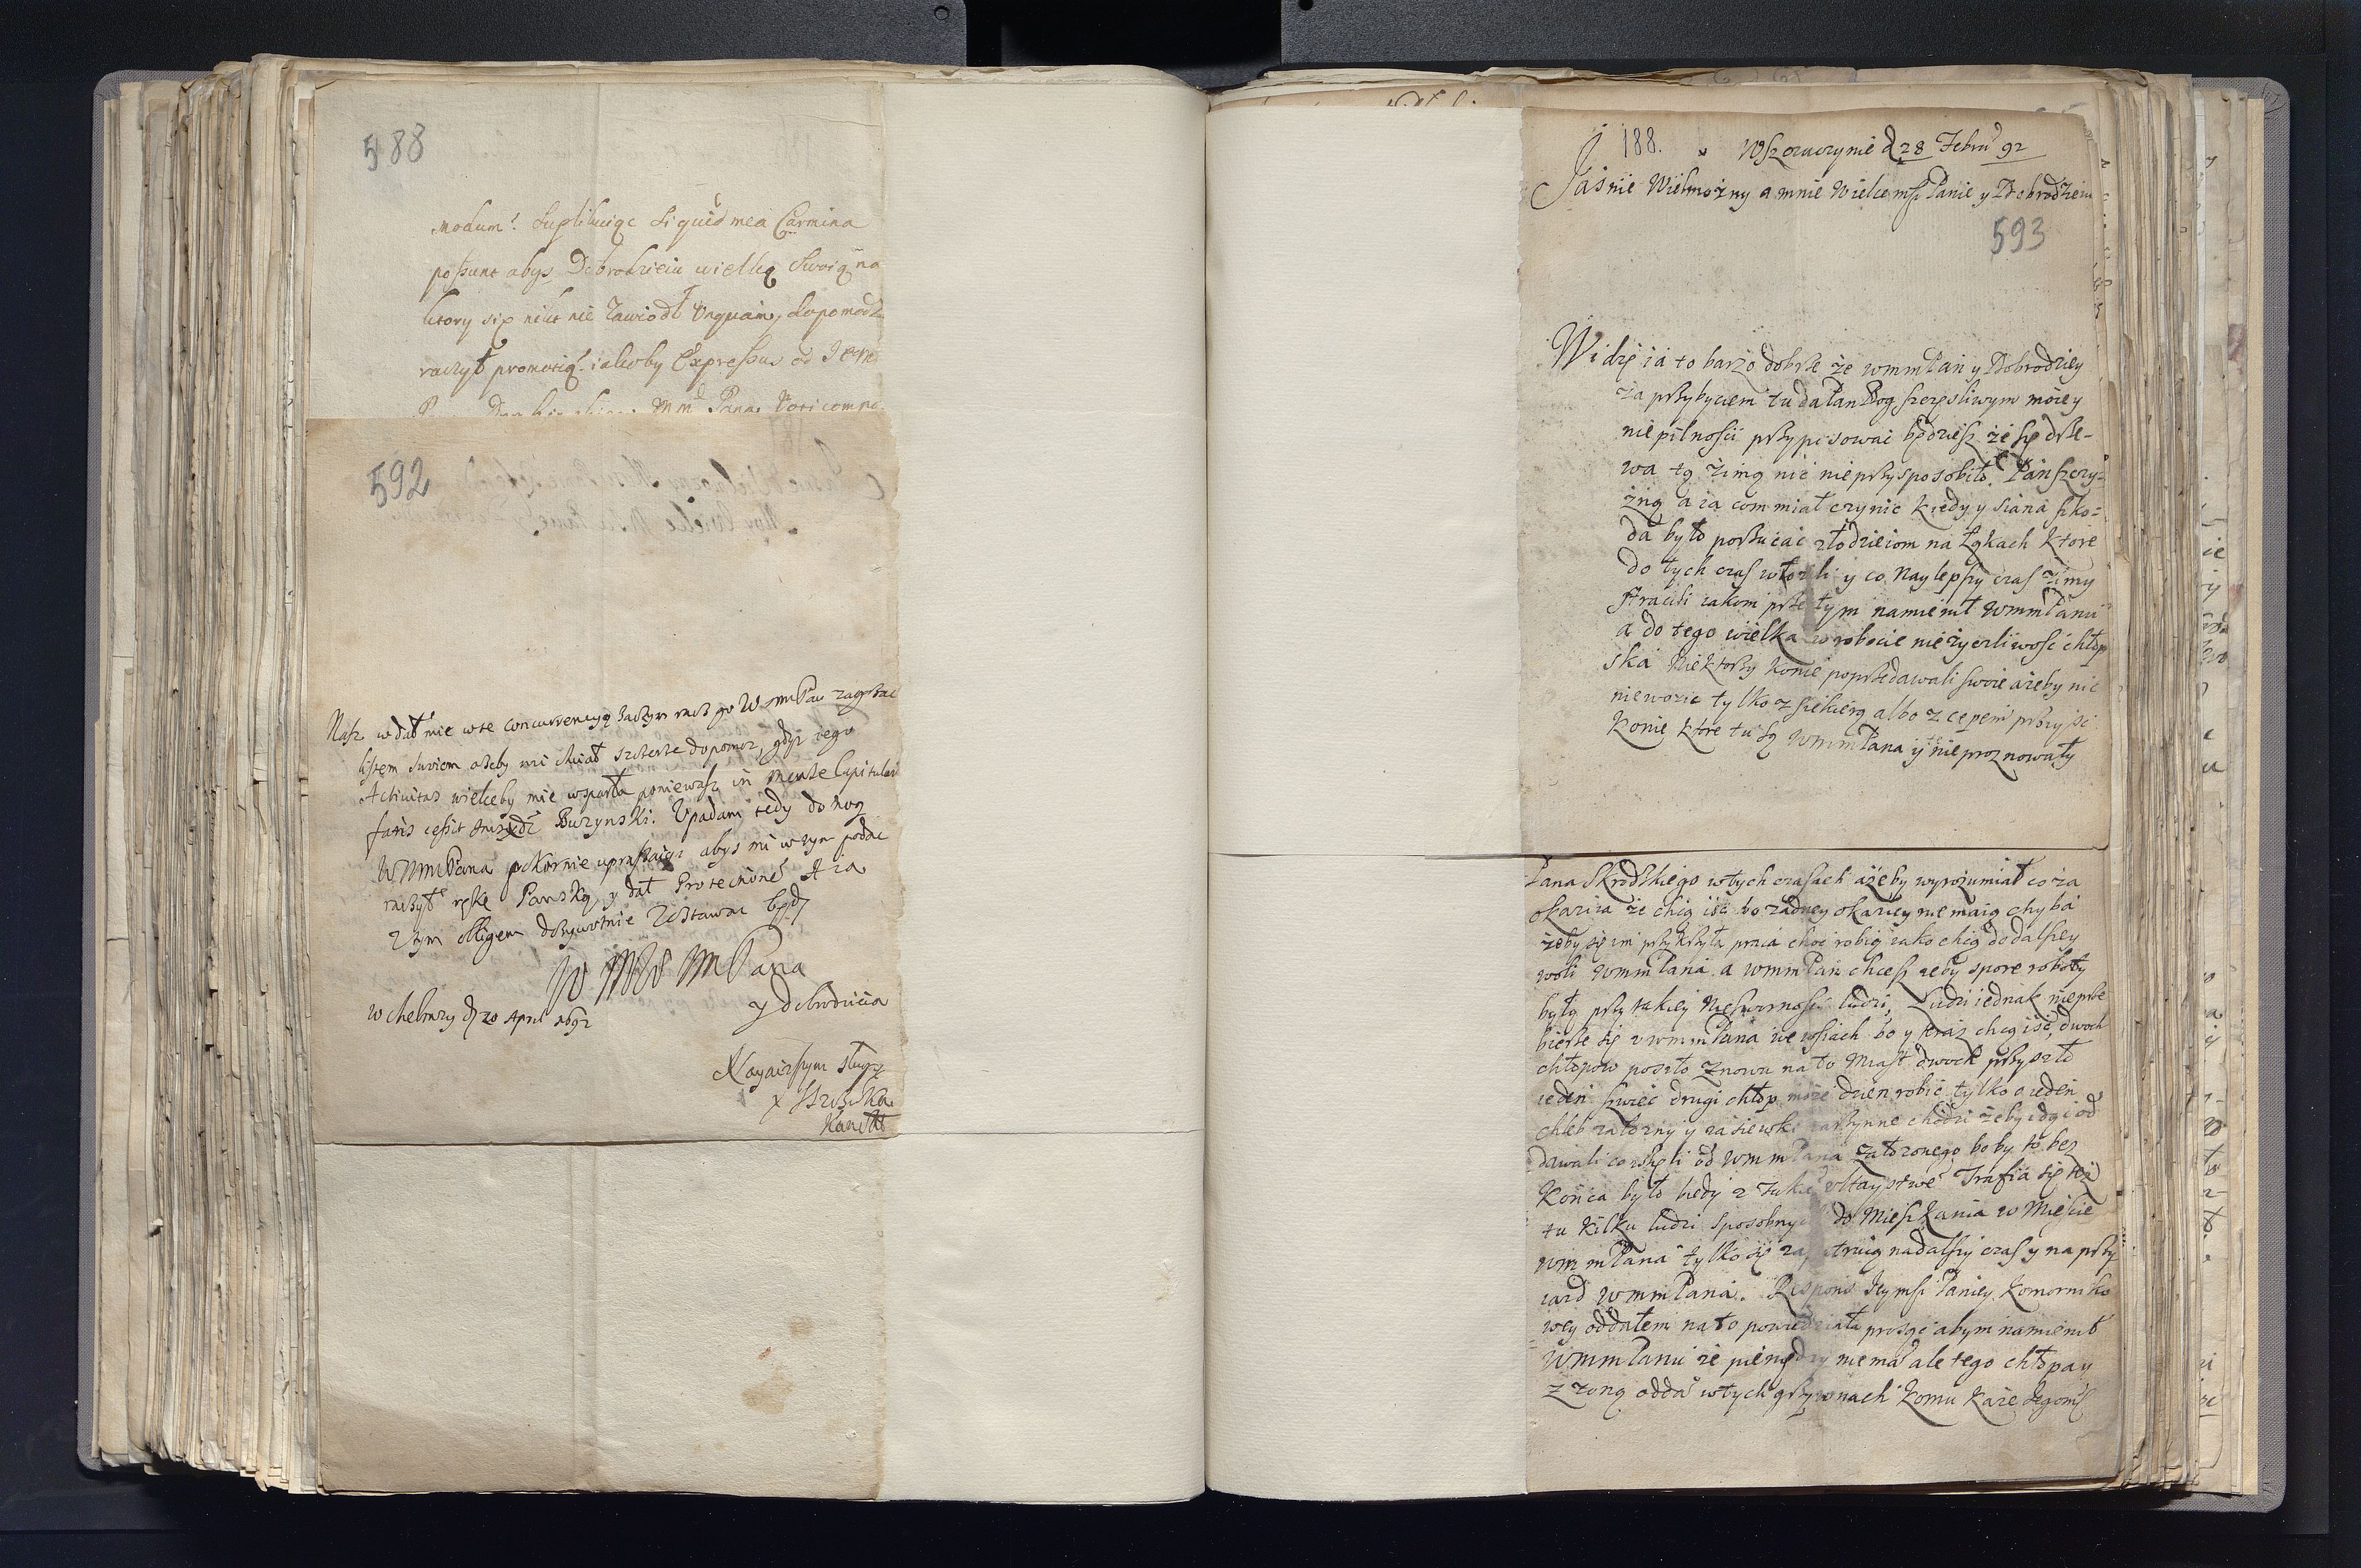 588
modum. Suplikuiąc si quid mea Carmina
possunt abys Dobrodzieiu wielką Swoią na
ktory się nikt nie zawiodł unquam, dopomodz
raczył promotią. iakoby Expressus od
592
Nasz. wdał mie w te concurrencyą racz go WmmPan zagrzac
listem swoim azeby mi chciał szczerze dopomoc, gdyz iego
Activitas wielceby mie wsparła poniewasz in mense Capitulari
Buzynski. Upadam tedy do nog
WMmPana pokornie upraszaiąc abys mi w tym podac
raczył rękę Panską, y dał Protectione A ia
z tym obligem dozywotnie zostawac będę
Pana
y dobrodzieia
w Chelmzy d 20 April 1692
Nayniszym sługą
188.
d 28 Febru 92
Jasnie Wielmożny a mnie Wielce mśc Panie y Dobrodzieiu
593
Widzę ia to barzo dobrze że wmmPan y Dobrodziey
za przybyciem tu da Pan Bog szczęsliwym może y
niepilnosci przypisować będziesz że się drze-
wa tą zimą nic nieprzysposobiło. Panszczy-
zną a ia com miał czynic kiedy y siana szko-
da było porzucac złodzieiom na łąkach ktore
do tych czas wozili y co naylepszy czas zimy
stracili iakom przetym namienił wmmPanu
a do tego wielka w robocie nieżyczliwosc chłop
ska niektorzy konie poprzedawali swoie azeby nic
niewozic tylko z siekierą albo z cepem przyjsc
konie ktore tu są wmmPana y te nie proznowały
Pana Skrodzkiego w tych czasach ażeby wyrozumiał co za
okazia że chcą isc bo żadney okaziey nie maią chyba
żeby się im przykrzyła praca choc robią iako chcą do dalszey
woli wmmPana. a wmmPan chcesz żeby spore roboty
były przy takiey niesforności ludzi, Ludzi iednak nieprze
bierze się u wmmPana we wsiach bo y teraz chcą isc, dwoch
chłopow poszło znowu na to miast dwoch przyszło
ieden szwiec drugi chłop może dzien robić tylko o ieden
chleb załozny y zasiewki iarzynne chodzi żeby idąc od
dawali co wzięli od wmmPana założonego boby to bez
konca było kiedy z takie Trafia się też
tu kilku ludzi sposobnych do mieszkania w Miescie
wmmPana tylko się zapatruią na dalszy czas y na przy
iazd wmmPana. Respons Jeymśc Paniey Komorniko
wey oddałem na to powiedziała prosząc abym namienił
wmmPanu że pieniędzy niema ale tego chłopa y
z żoną odda w tych grzywnach komu każe Jegomśc